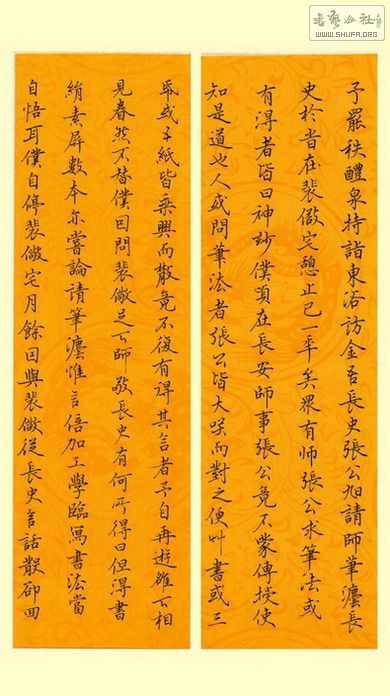 書藝公社
WWW.SHUFA.ORG
予罷秩醴泉特詣東洛訪金吾長史張公旭請師筆灋長
史於旹在裴儆宅憩止已一年矣衆有师張公求筆法或
有淂者皆曰神玅僕頃在長安師事張公竟不蒙傳授使
知是道也人或問筆法者張公皆大笑而對之便艸書或三
帋或五紙皆乗興而散竟不復有淂其言者予自再逰雒下相
見眷然不替僕因問裴儆足下師敬長史有何所得曰但淂書
絹素屏數本尔嘗論請筆灋惟言倍加工學臨寫書法當
自悟耳僕自停裴儆宅月餘因與裴儆從長史言話散卻回